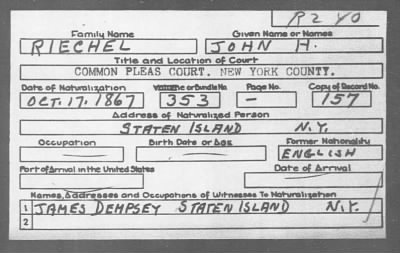 R240
Family Name Given Name or Names
RIECHEL JOHN H.
Title and Location of Court
COMMON PLEAS COURT. NEW YORK COUNTY.
Date of Naturalization Volume or Bundle No. Page No. Copy of Record No.
OCT. 17. 1867 353 — 157
Address of Naturalized Person
STATEN ISLAND N.Y.
Occupation Birth Date or Age Former Nationality
ENGLISH
Port of Arrival in the United States Date of Arrival
Names, Addresses and Occupations of Witnesses To Naturalization
1 JAMES DEMPSEY STATEN ISLAND N.Y.
2